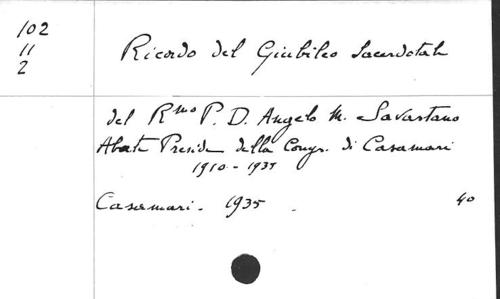 102
11
2
Ricordo del Giubileo Sacerdotale
del Rmo P. D. Angelo M. Savastano
Abate Preside della Congr. di Casamari
1910 - 1935
Casamari - 1935 .
40